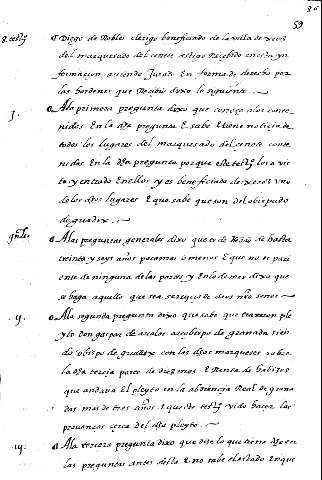 59
8. testi°
Diego de Robles clerigo beneficiado de la villa de
del marquesado del cenete testigo Recebido en esta yn
formacion aviendo Jurado En forma de derecho por
las hordenes que Recibio dixo lo siguiente
j.
A la primera pregunta dixo que conoçe a los conte
nidos En la dha pregunta E sabe E tiene noticia de
todos los lugares del marquesado del cenete conte
nidos En la dha pregunta porque este testi° los a vis
to y entrado En ellos y es beneficiado de uno
de los dhos lugares E que sabe que son del obispado
de guadix
gnles
A las preguntas generales dixo que es de hedad de hasta
treinta y seys años poco mas o menos E que no es pari
ente de ninguna de las partes y En lo demas dixo que
se haga aquello que sea servicio de dios nro señor
ij.
A la segunda pregunta dixo que sabe que trataron ple
yto don gaspar de avalos arçobispo de granada sien
do obispo de guadix con los dhos marqueses sobre
la dha tercia parte de diezmos E Renta de habizes
que andava El pleyto en la abdiençia Real de grana
da mas de tres años E queste testi° vido hazer las
provanças cerca del dho pleyto
iij.
A la tercera pregunta dixo que dize lo que tiene dho en
las preguntas antes desta E no sabe el estado En que